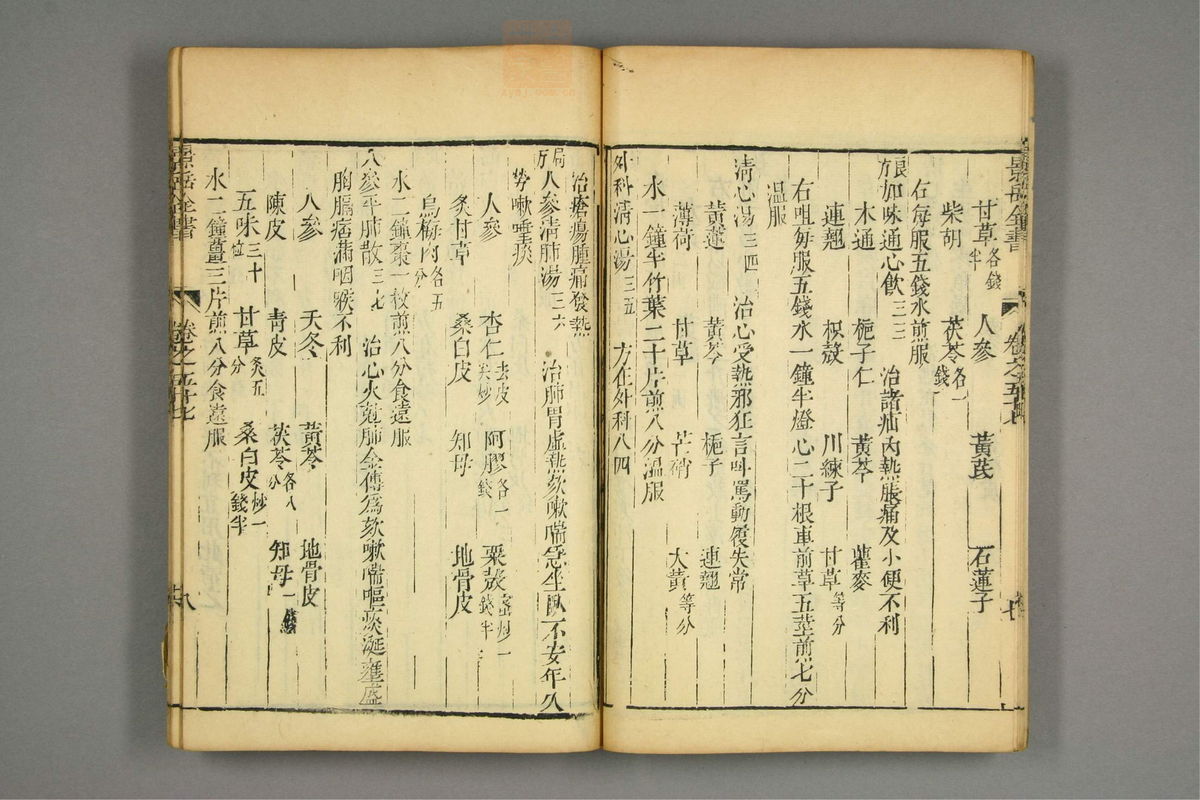 景岳全書 卷之五十七
甘草各錢半 人參 黃芪 石蓮子
柴胡 茯苓各一錢
右每服五錢水煎服
良方加味通心飲三三 治諸疝內熱脹痛及小便不利
木通 梔子仁 黃芩 瞿麥
連翹 枳殼 川練子 甘草等分
右㕮咀每服五錢水一鐘半燈心二十根車前草五莖煎七分
溫服
清心湯三四 治心受熱邪狂言叫罵動履失常
黃連 黃芩 梔子 連翹
薄荷 甘草 芒硝 大黃等分
水一鐘半竹葉二十片煎八分溫服
外科清心湯三五 方在外科八四
治瘡瘍腫痛發熱
局方人參清肺湯三六 治肺胃虛熱欬嗽喘急坐臥不安年久
勞嗽唾痰
人參 杏仁去皮尖炒 阿膠各一錢 粟殼蜜炒一錢半
炙甘草 桑白皮 知母 地骨皮
烏梅肉各五分
水二鐘棗一枚煎八分食遠服
人參平肺散三七 治心火剋肺金傳爲欬嗽喘嘔痰涎壅盛
胸膈痞滿咽喉不利
人參 天冬 黃芩 地骨皮
陳皮 青皮 茯苓各八分 知母一錢
五味三十粒 甘草炙五分 桑白皮炒一錢半
水二鐘薑三片煎八分食遠服
景岳全書 卷之五十七 十八